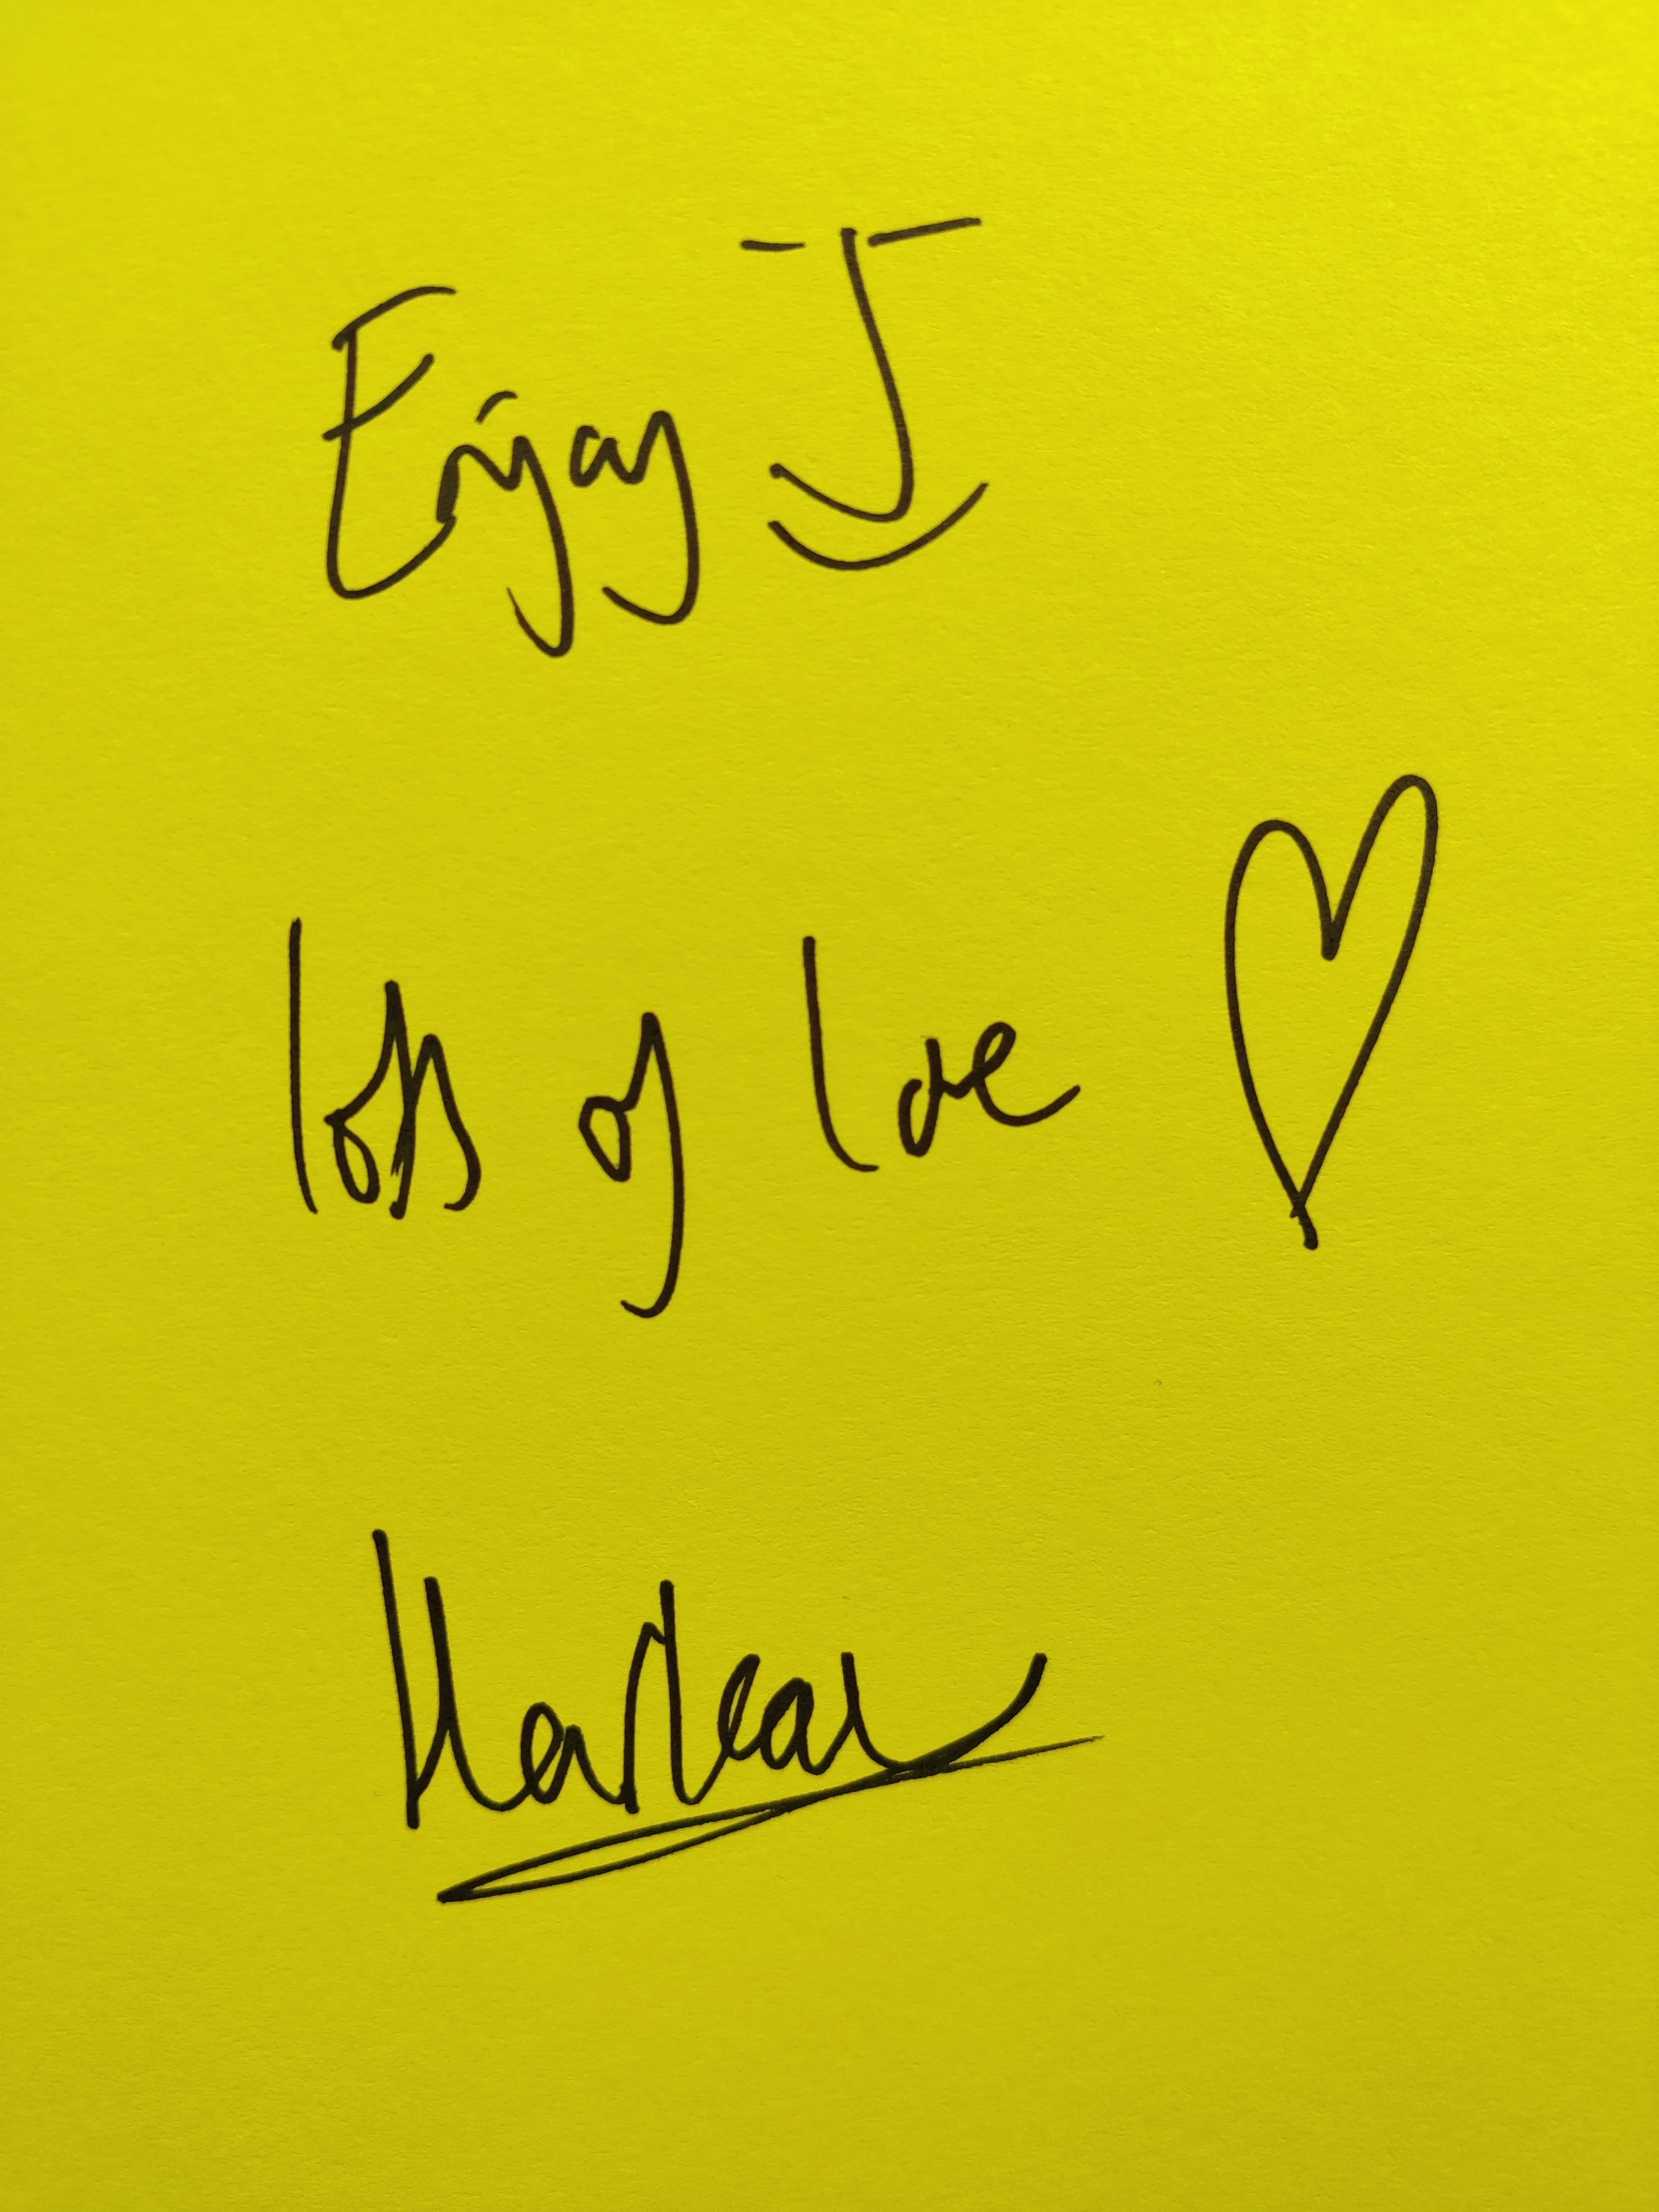 Enjoy
lots of love